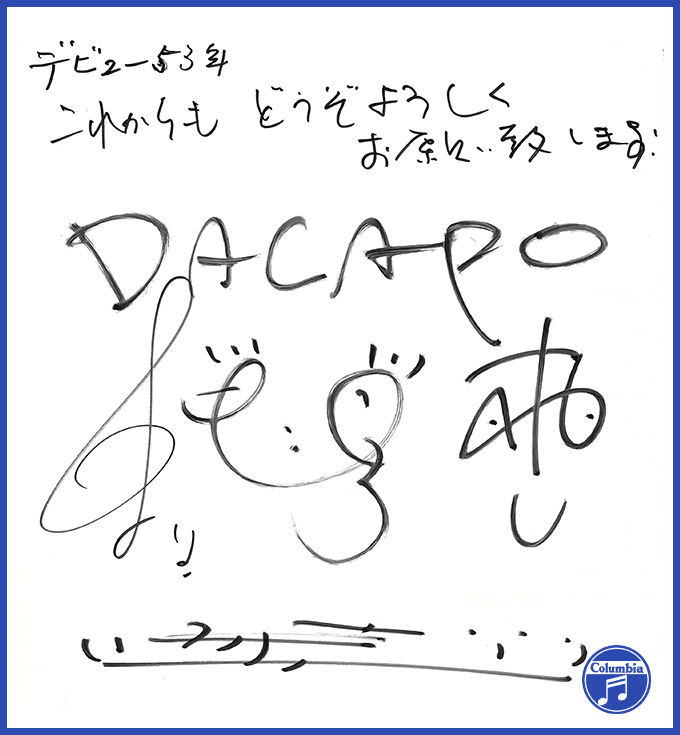 デビュー53年
これからも どうぞよろしく
お願い致します!
DACAPO
Columbia